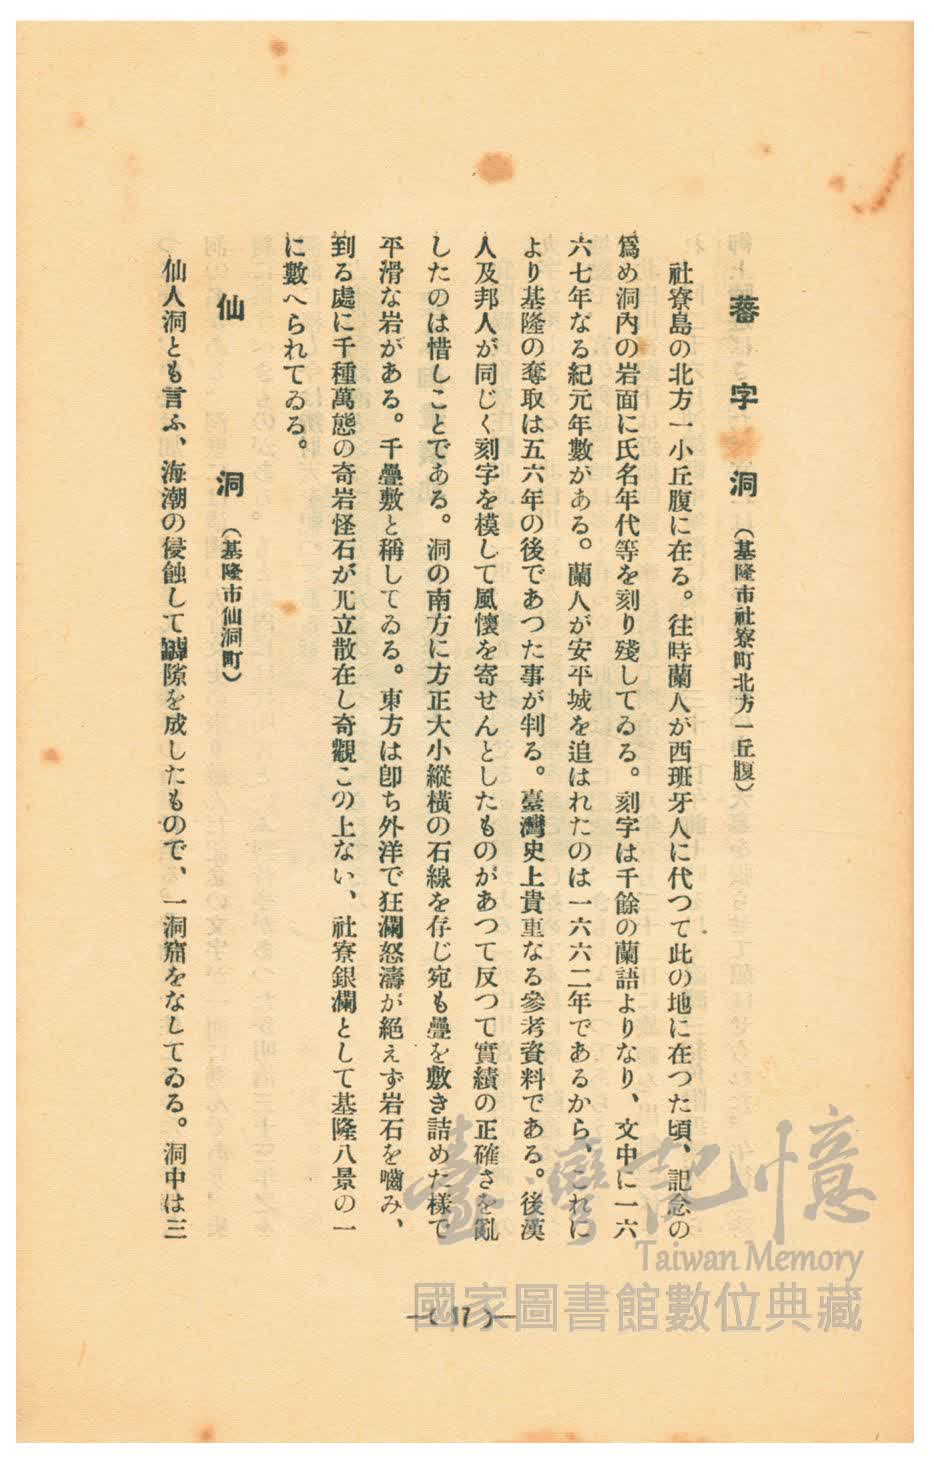 蕃字洞（基隆市社寮町北方一丘腹）
社寮島の北方一小丘腹に在る。往時蘭人が西班牙人に代つて此の地に在つた頃、記念の
爲め洞內の岩面に氏名年代等を刻り殘してゐる。刻字は千餘の蘭語よりなり、文中に一六
六七年なる紀元年數がある。蘭人が安平城を追はれたのは一六六二年であるから、これに
より基隆の奪取は五六年の後であつた事が判る。臺灣史上貴重なる參考資料である。後漢
人及邦人が同じく刻字を模して風懷を寄せんとしたものがあつて反つて實績の正確さを亂
したのは惜しことである。洞の南方に方正大小縱橫の石線を存じ宛も疊を敷き詰めた樣で
平滑な岩がある。千疊敷と稱してゐる。東方は卽ち外洋で狂瀾怒濤が絕えず岩石を嚙み、
到る處に千種萬態の奇岩怪石が兀立散在し奇觀この上ない、社寮銀瀾として基隆八景の一
に數へられてゐる。
仙洞（基隆市仙洞町）
仙人洞とも言ふ、海潮の侵蝕して罅隙を成したもので、一洞窟をなしてゐる。洞中は三
—( 17 )—
臺灣記憶
Taiwan Memory
國家圖書館數位典藏